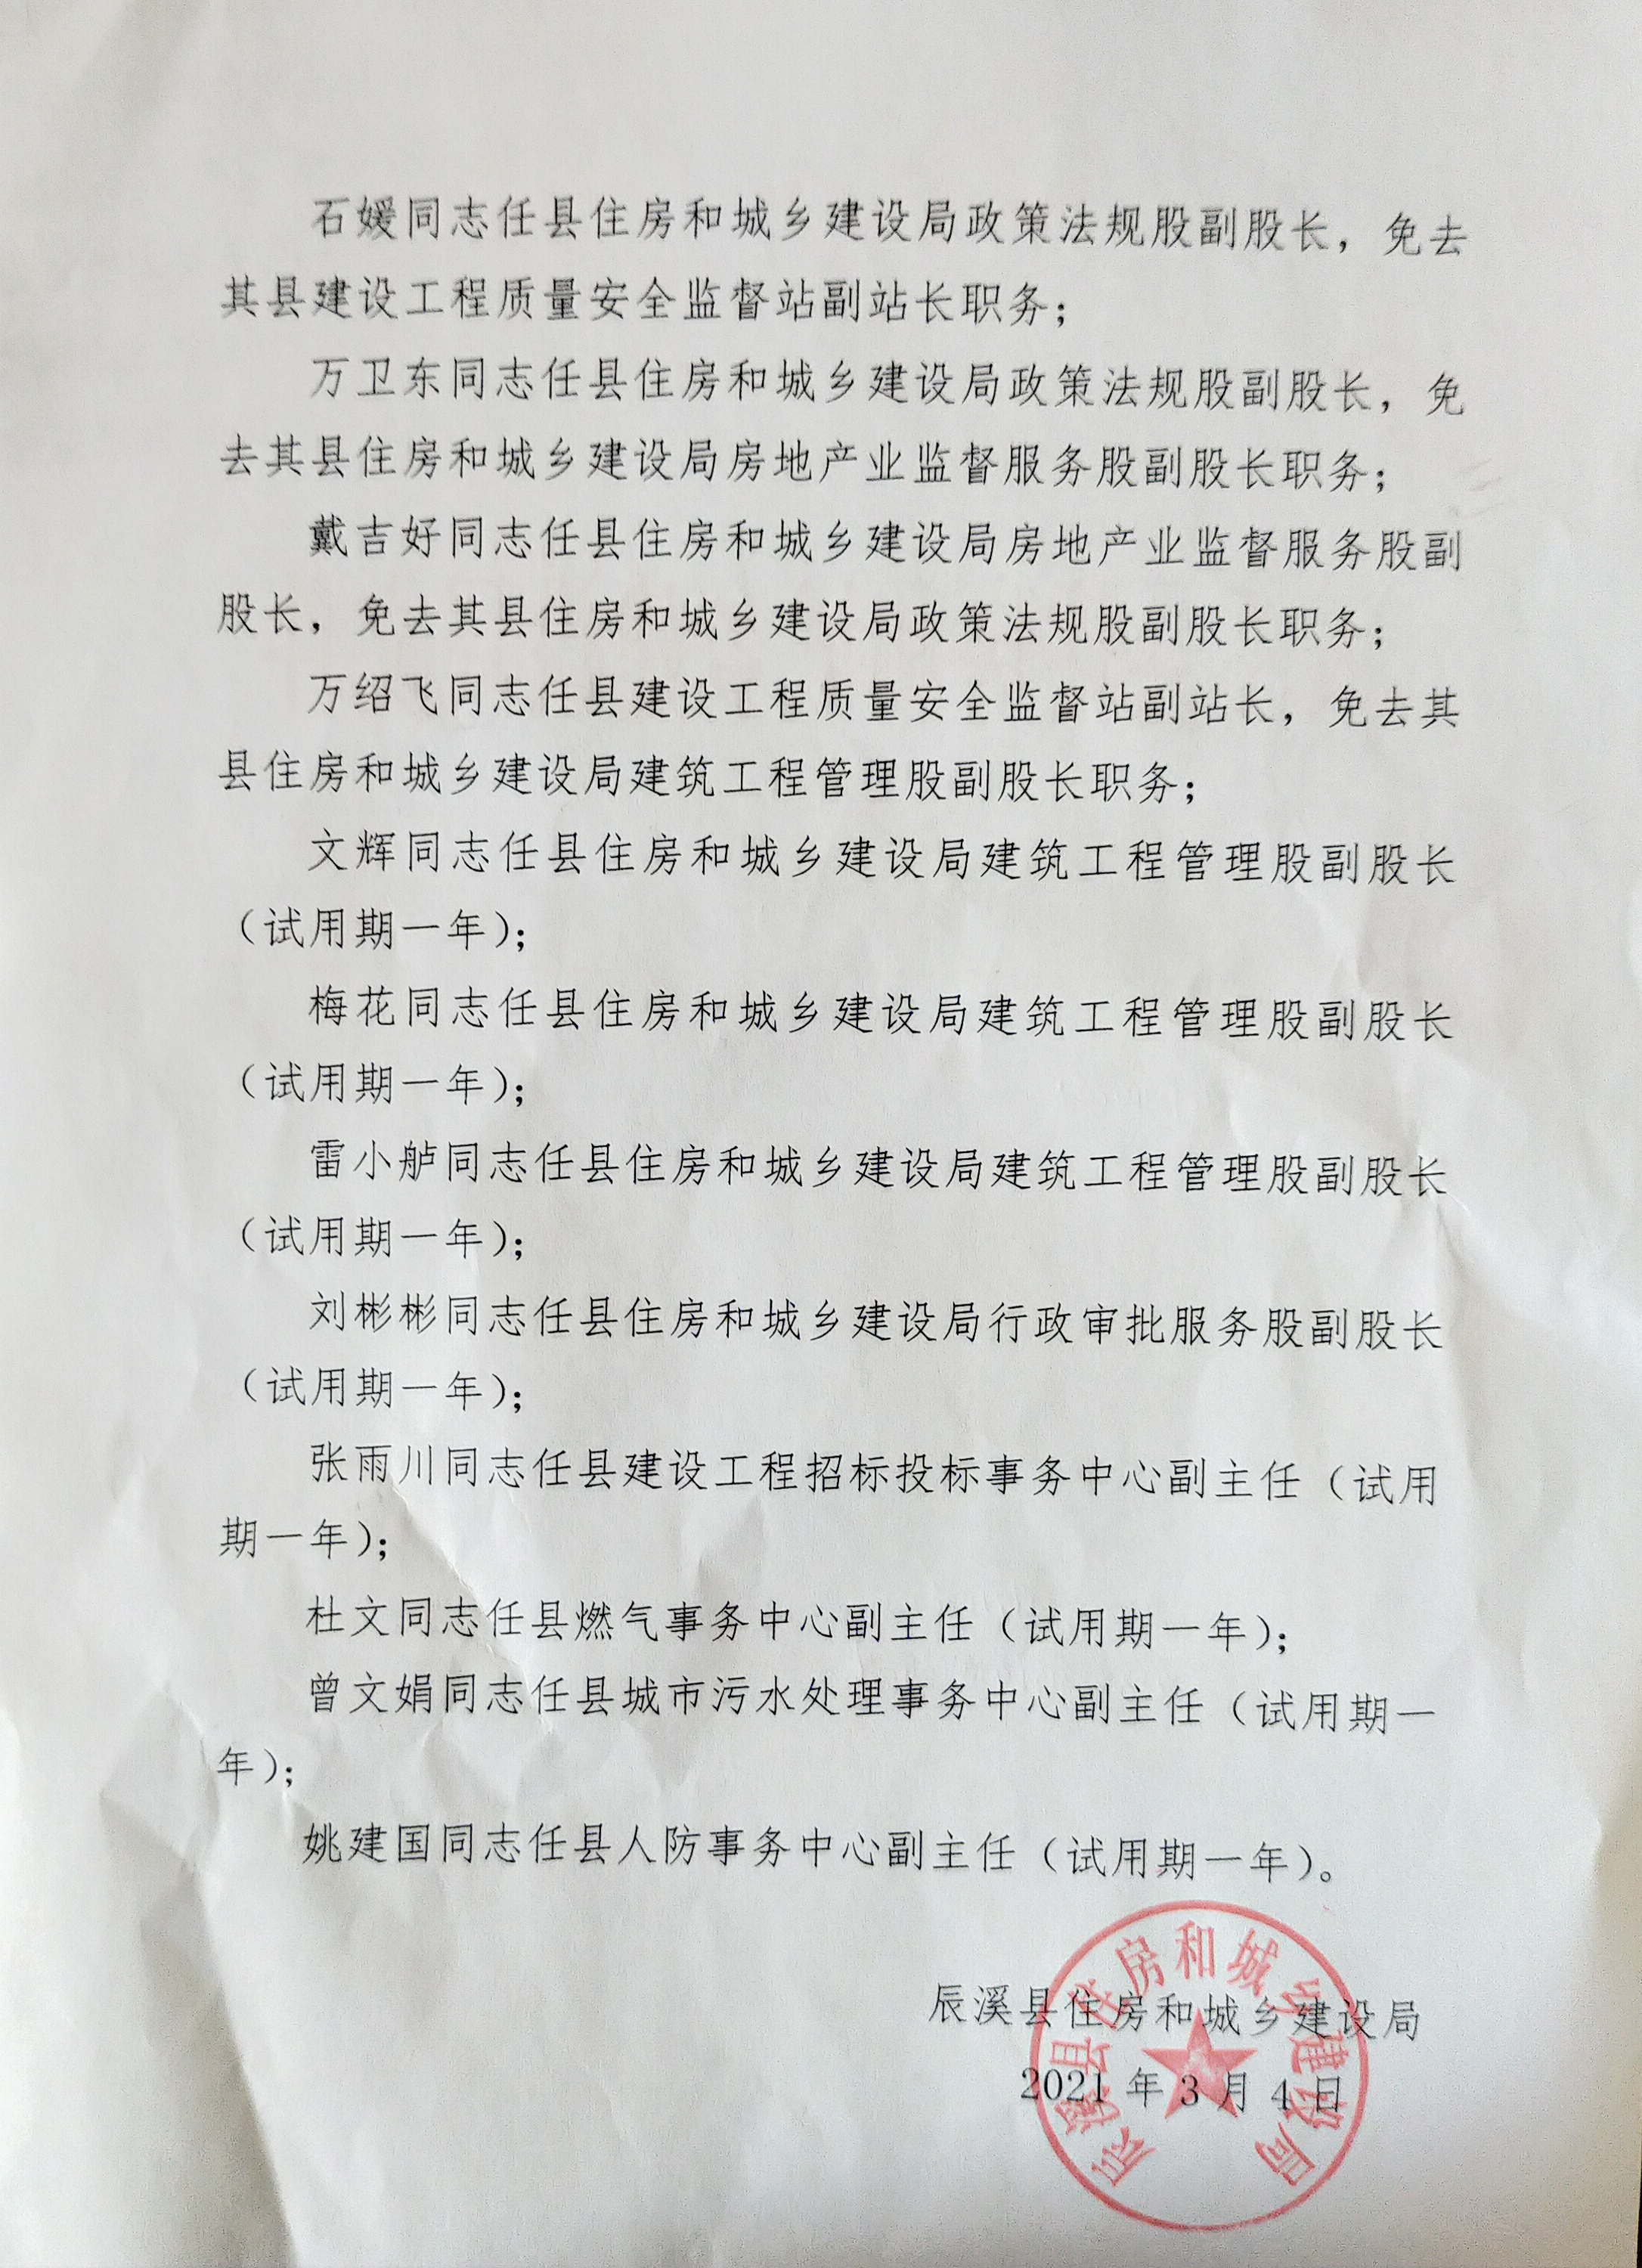 石媛同志任县住房和城乡建设局政策法规股副股长，免去
其县建设工程质量安全监督站副站长职务；
万卫东同志任县住房和城乡建设局政策法规股副股长，免
去其县住房和城乡建设局房地产业监督服务股副股长职务；
戴吉好同志任县住房和城乡建设局房地产业监督服务股副
股长，免去其县住房和城乡建设局政策法规股副股长职务；
万绍飞同志任县建设工程质量安全监督站副站长，免去其
县住房和城乡建设局建筑工程管理股副股长职务；
文辉同志任县住房和城乡建设局建筑工程管理股副股长
（试用期一年）；
梅花同志任县住房和城乡建设局建筑工程管理股副股长
（试用期一年）；
雷小舻同志任县住房和城乡建设局建筑工程管理股副股长
（试用期一年）；
刘彬彬同志任县住房和城乡建设局行政审批服务股副股长
（试用期一年）；
张雨川同志任县建设工程招标投标事务中心副主任（试用
期一年）；
杜文同志任县燃气事务中心副主任（试用期一年）；
曾文娟同志任县城市污水处理事务中心副主任（试用期一
年）；
姚建国同志任县人防事务中心副主任（试用期一年）。
辰溪县住房和城乡建设局
2021年3月4日
辰溪县住房和城乡建设局